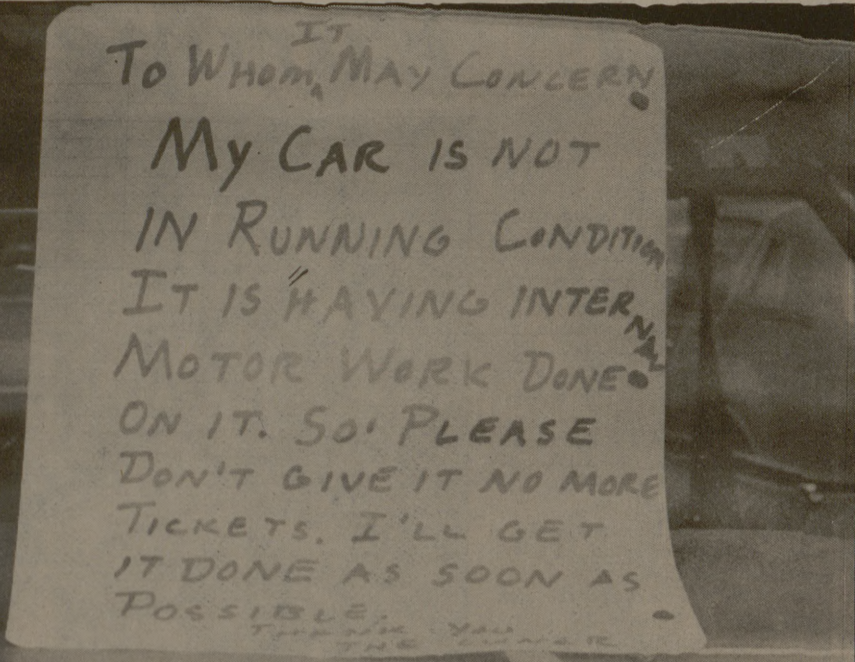 To Whom It May Concern
My Car is not
in Running Condition
It is Having Internal
Motor Work Done
on it. So' Please
Don't give it no more
Tickets. I'll get
it done as soon as
Possible.
Thank-you
The Owner